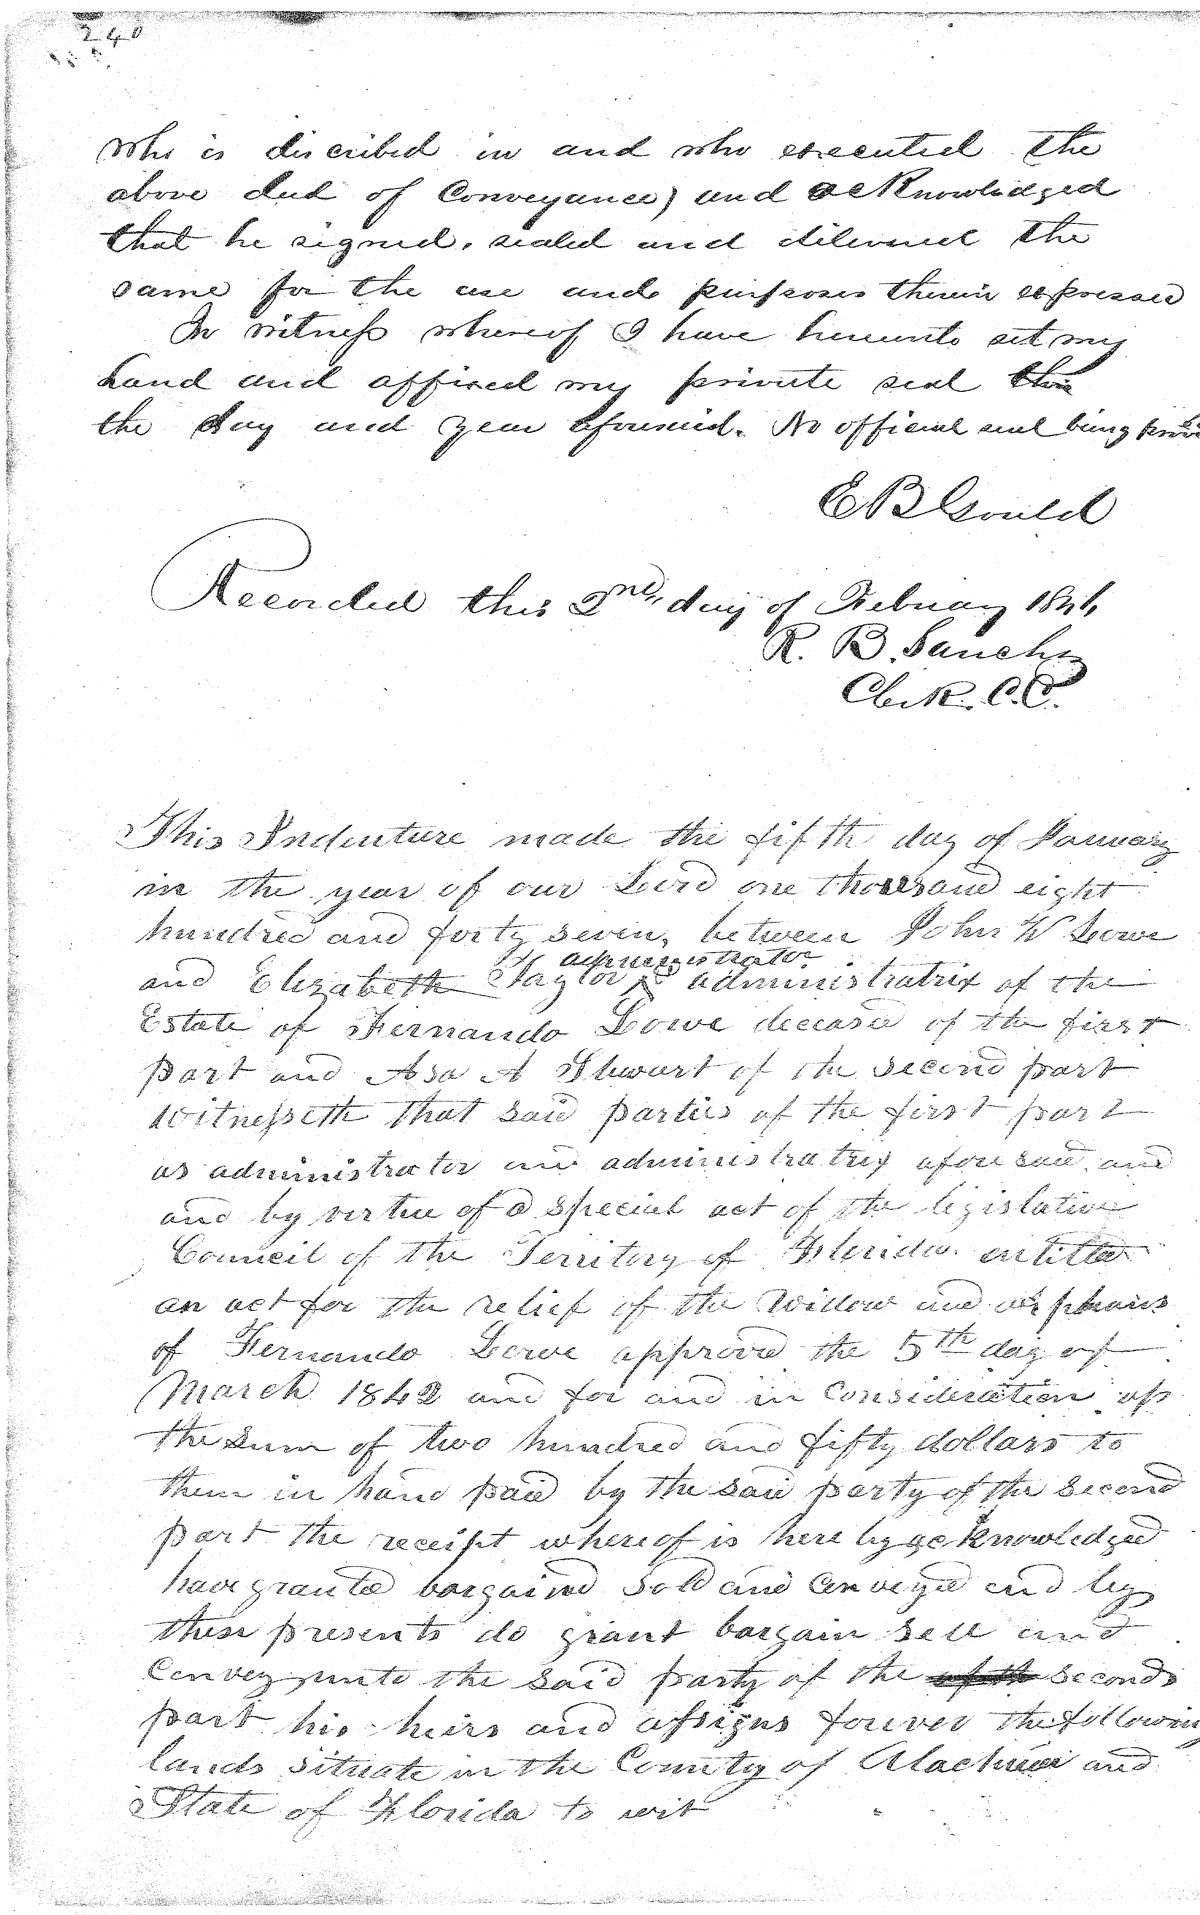 240
who is discribed in and who executed the
above deed of Conveyance) and acknowledged
that he signed, sealed and delivered the
same for the use and purposes therein expressed
In witness whereof I have hereunto set my
hand and affixed my private seal this
the day and year aforesaid. No official seal being
E B Gould
Recorded this 2nd, day of February
R. B. Sanchez
Clerk. C. C.
This Indenture made the fifth day of January
in the year of our Lord one thousand eight
hundred and forty seven, between John W Lowe
administrator
and Elizabeth Taylor administratrix of the
Estate of Fernando Lowe deceased of the first
part and Asa A Stewart of the second part
Witnesseth that said parties of the first part
as administrator and administratrix aforesaid and
and by virtue of a special act of the legislative
Council of the Territory of Florida entitled
an act for the relief of the Widow and orphans
of Fernando Lowe approved the 5th day of
March 1842 and for and in Consideration of
the sum of two hundred and fifty dollars to
them in hand paid by the said party of the second
part the receipt whereof is here by acknowledged
have granted bargained Sold and Conveyed and by
these presents do grant bargain sell and
Convey unto the said party of the second
part his heirs and assigns forever the following
lands situate in the County of Alachua and
State of Florida to wit